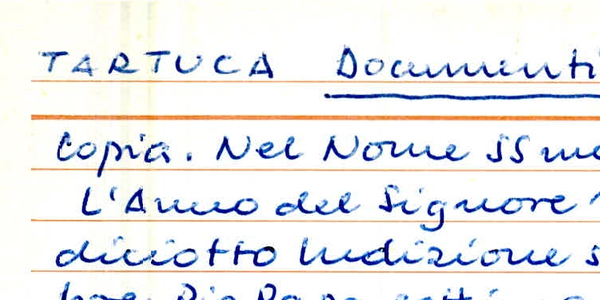 TARTUCA Documenti
Copia. Nel Nome SSmo
L'Anno del Signore
diciotto Indizione
Pio Papa